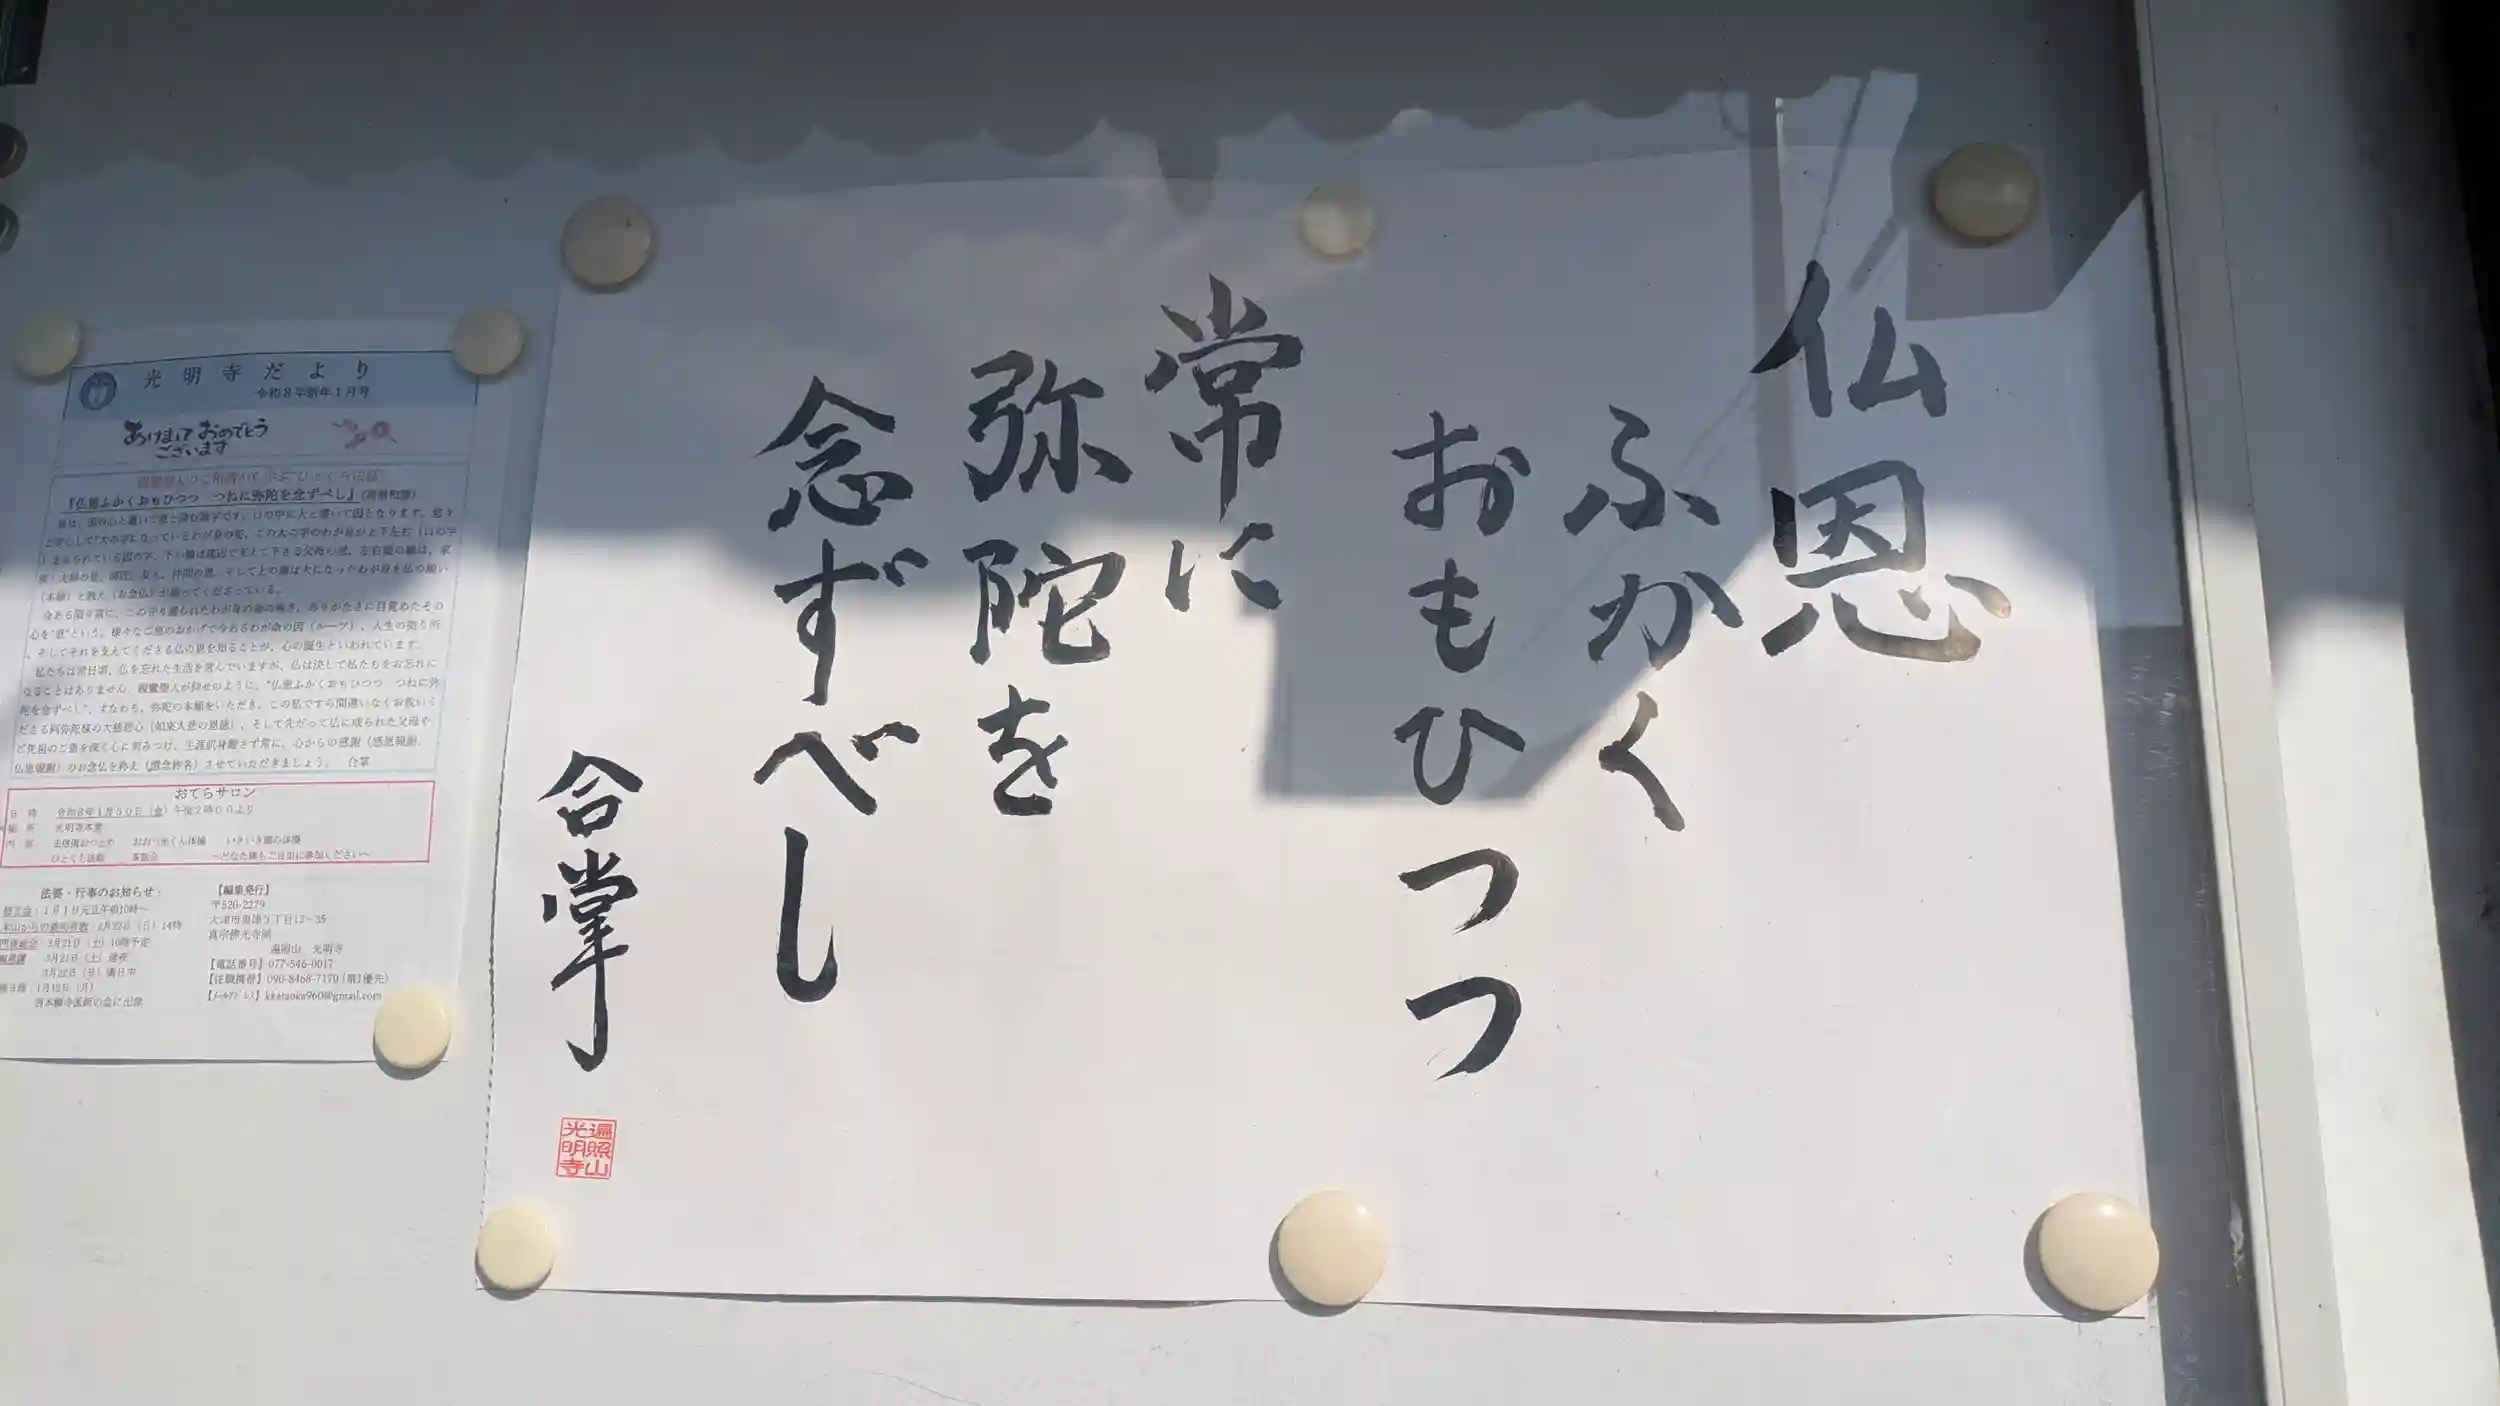 仏恩
ふかく
おもひつつ
常に
弥陀を
念ずべし
合掌
遍照山
光明寺
光明寺だより
令和8年新年1月号
あけましておめでとう
ございます
『仏恩ふかくおもひつつ つねに弥陀を念ずべし』
、そしてそれを支えてくださる仏の恩を知ることが、心の誕生といわれています。
私たちは常日頃、仏を忘れた生活を営んでいますが、仏は決して私たちをお忘れに
なることはありません。親鸞聖人が仰せのように、"仏恩ふかくおもひつつ つねに弥
陀を念ずべし"、すなわち、弥陀の本願をいただき、この私ですら間違いなくお救いく
ださる阿弥陀様の大慈悲心（如来大悲の恩徳）、そして先だって仏に成られた父母や
ご先祖のご恩を深く心に刻みつけ、生涯肌身離さず常に、心からの感謝（感恩報謝、
仏恩報謝）のお念仏を称え（憶念称名）させていただきましょう。 合掌
おてらサロン
日 時 令和8年1月30日（金）午後2時00より
場 所 光明寺本堂
～どなた様もご自由に参加ください～
法要・行事のお知らせ：
修正会：1月1日元旦午前10時～
2月22日（日）14時
3月21日（土）10時予定
3月21日（土）逮夜
3月22日（日）満日中
1月12日（月）
【編集発行】
〒520-2279
真宗佛光寺派
遍照山 光明寺
【電話番号】077-546-0017
【住職携帯】090-8468-7170（第1優先）
【ﾒｰﾙｱﾄﾞﾚｽ】kkataoka960@gmail.com